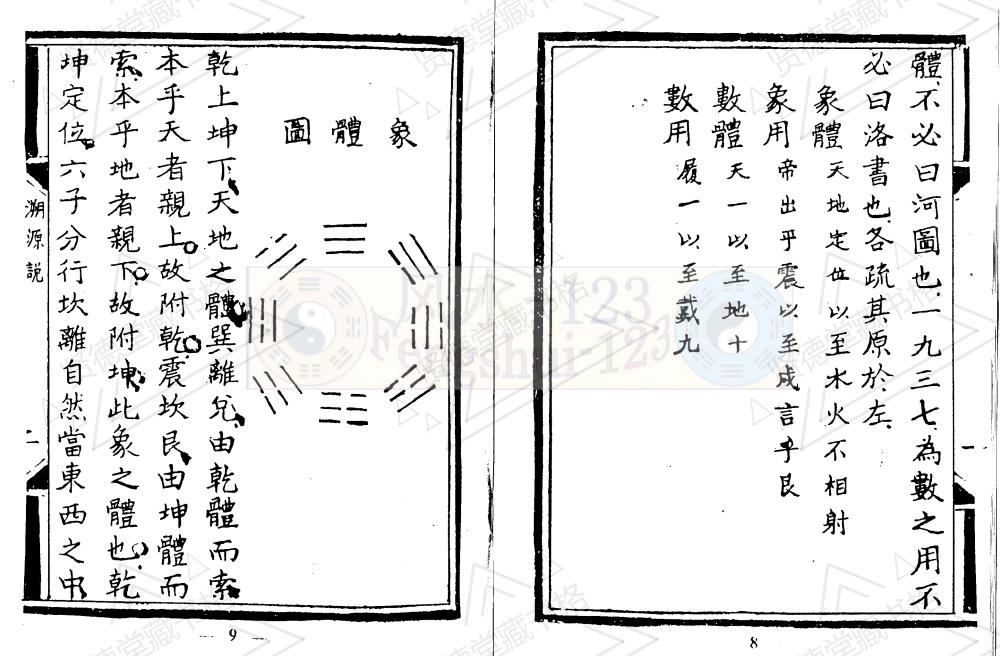 體、不必曰河圖也、一九三七、為數之用、不
必曰洛書也、各疏其原於左、
象體 天地定位以至水火不相射
象用 帝出乎震以至成言乎艮
數體 天一以至地十
數用 履一以至戴九
8
象體圖
乾上坤下、天地之體、巽離兌、由乾體而索、
本乎天者親上。故附乾。震坎艮、由坤體而
索、本乎地者親下。故附坤、此象之體也。乾
坤定位。六子分行、坎離自然當東西之中、
溯源説
二
— 9 —
风水-123
Fengshui-123
贤德堂藏书格